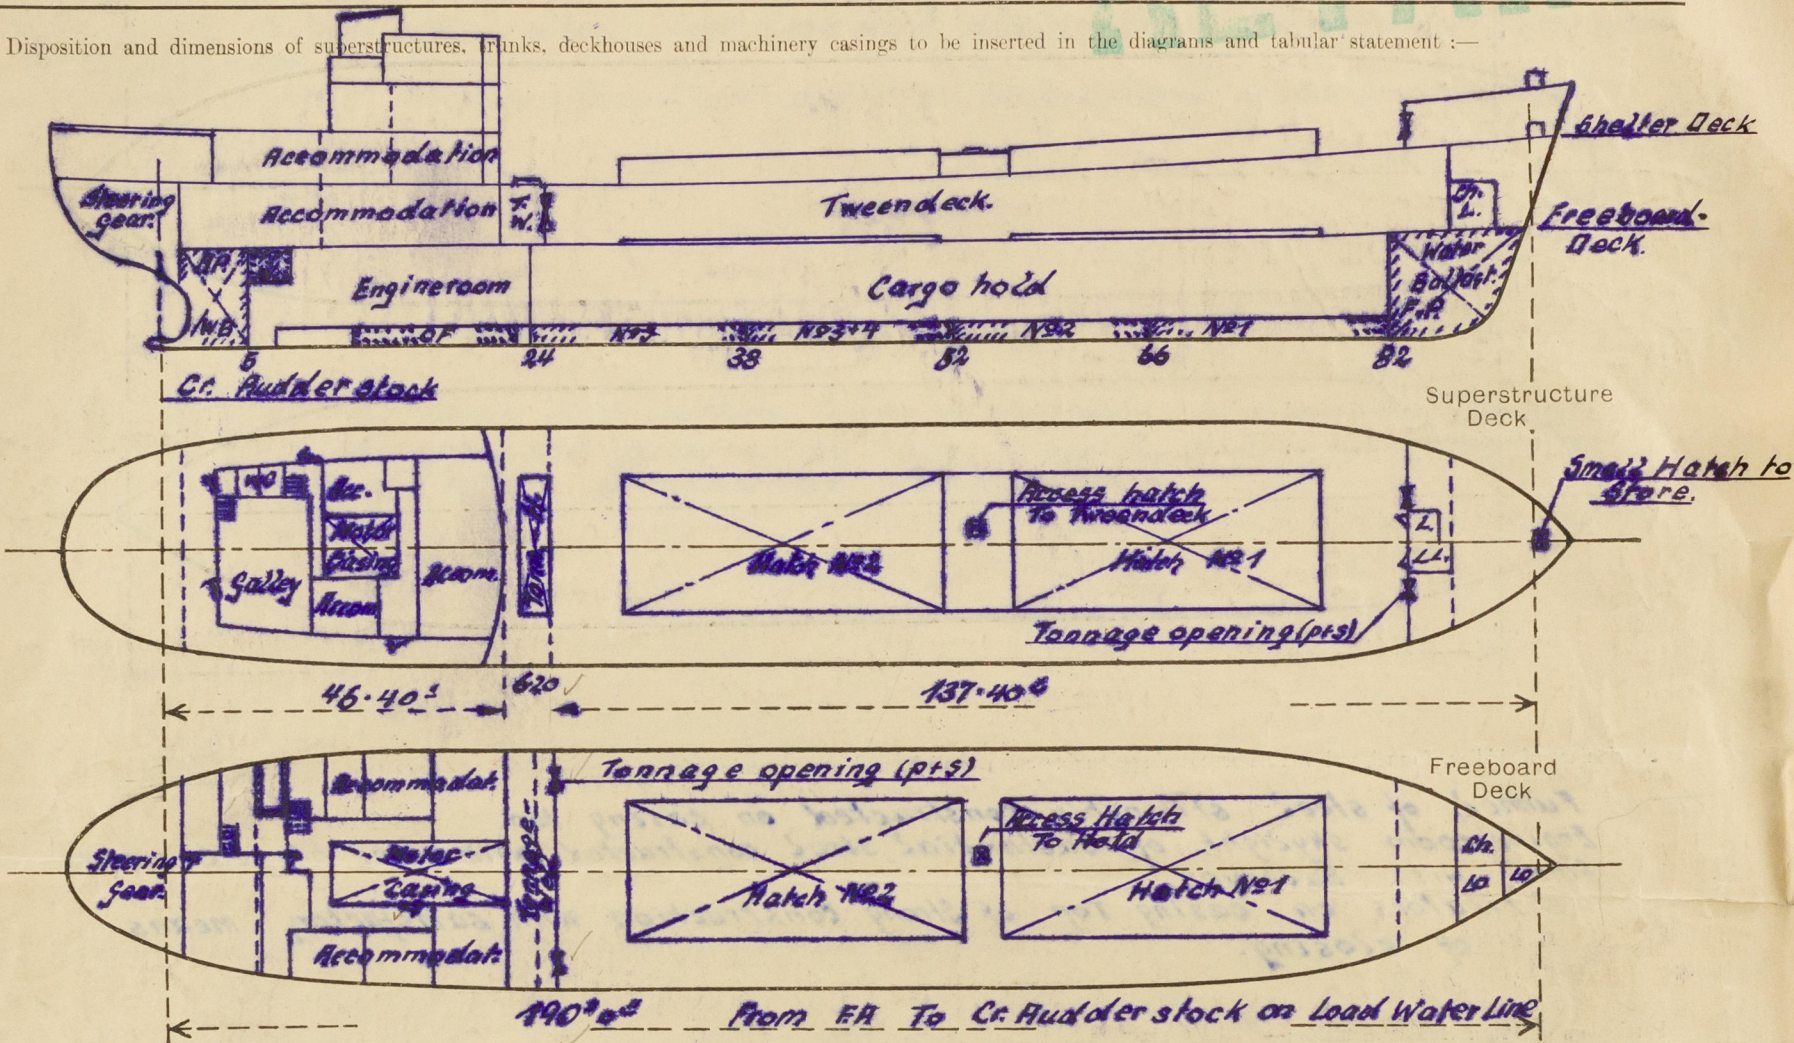 Disposition and dimensions of superstructures, trunks, deckhouses and machinery casings to be inserted in the diagrams and tabular statement :—
Shelter Deck
Accommodation
Steering
gear.
Accommodation
T.
W.
Tweendeck.
Ch.
L.
Freeboard-
Deck.
AP
WB
Engineroom
Cargo hold
Water
Ballast.
F.P.
OF
No3+4
No2
No1
5
24
38
52
66
82
Cr. Rudder stock
Superstructure
Deck
Small Hatch to
Store.
Acc.
Motor
Casing
Galley
Accom
Accom.
Hatch No2
Access hatch
To Tweendeck
Hatch No1
L.
LL.
Tonnage opening (p+s)
46.40
620
137.40
Freeboard
Deck
Accommodat.
Tonnage opening (p+s)
Steering
Gear.
Motor-
Casing
Hatch No2
Access Hatch
To Hold
Hatch No1
Ch.
Lo
Lo
Accommodat.
190'0" From F.P. To Cr. Rudder stock on Load Water Line